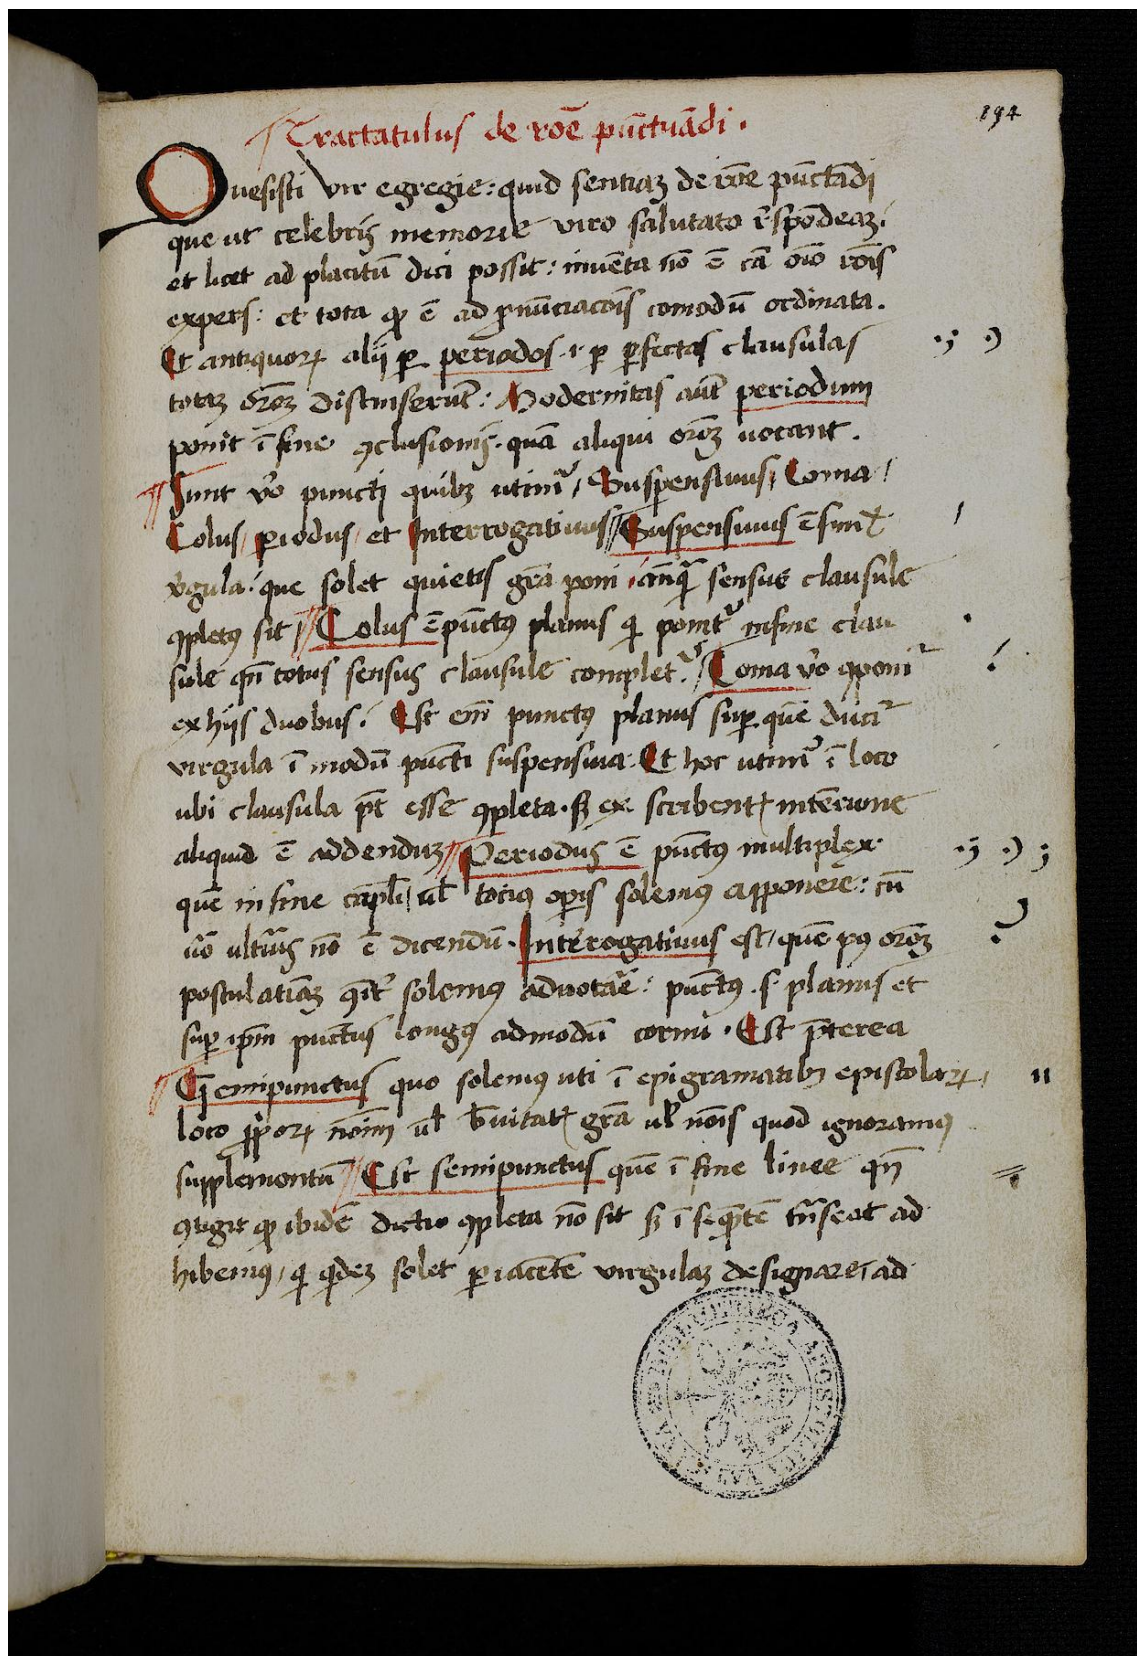 194
Tractatulus de rōe pūctuādi .
Quesisti vir egregie : quid sentiaꝫ de rōne pūctādi
que ut celebris memorie viro salutato rˀspōdeaꝫ .
et licet ad placitū dici possit : inuēta nō ē tā oīo rōis
expers : et tota ꝙ ē ad ꝓnūciacōis comodū ordinata .
Et antiquoꝝ alij ꝑ periodos .i. ꝑ ꝑfectas clausulas .; .)
totaꝫ orōꝫ distinxerūt : Modernitas aūt periodum
ponit ī fine ꝯclusionis . quā aliqui orōꝫ uocant .
Sunt v̄o puncti quibꝫ utimᷣ / Suspensiuus / Coma /
Colus / ꝑiodus / et Interrogatiuus // Suspensiuus ē simlˀ /
v̄gula . que solet quietis grā poni anq̄ sensus clausule
ꝯpletꝰ sit // Colus ē pūctꝰ planus qi ponitᷣ in fine clau .
sule qn̄ totus sensus clausule completᷣ . / Coma v̄o ꝯponiᷣ
ex hijs duobus . Est em̄ punctꝰ planus suꝑ quē duciᷣ
virgula ī modū pūcti suspensiui . Et hoc utimᷣ ī loco
ubi clausula pt̄ esse ꝯpleta . sꝫ ex scribentꝭ intencione
aliquid ē addenduꝫ // Periodus ē pūctꝰ multiplex . .; .) ;
quē in fine capli / ul̄ totiꝰ oꝑis solemꝰ apponere : cū
v̄o ulteriꝰ nō ē dicendū . Interrogatiuus est / quē pꝰ orōꝫ
postulatiuaꝫ solemꝰ adnotare : pūctꝰ .s. planus et
suꝑ ipm̄ punctus longꝰ ad modū cornu . Est p̄terea
Gemipunctus quo solemus uti ī epigramatibꝫ epistolaꝝ / ıı
loco ꝓprioꝝ noīm ul̄ b̄uitatꝭ grā ul̄ nōis quod ignoramꝰ
supplementū // Est semipunctus quē ī fine linee qn̄
ꝯtigit ꝙ ibidē dictio ꝯpleta nō sit sꝫ ī seq̄ntē trāseat ad
hibemꝰ / qi q̄deꝫ solet ꝑ iacentē virgulaꝫ designare / ad